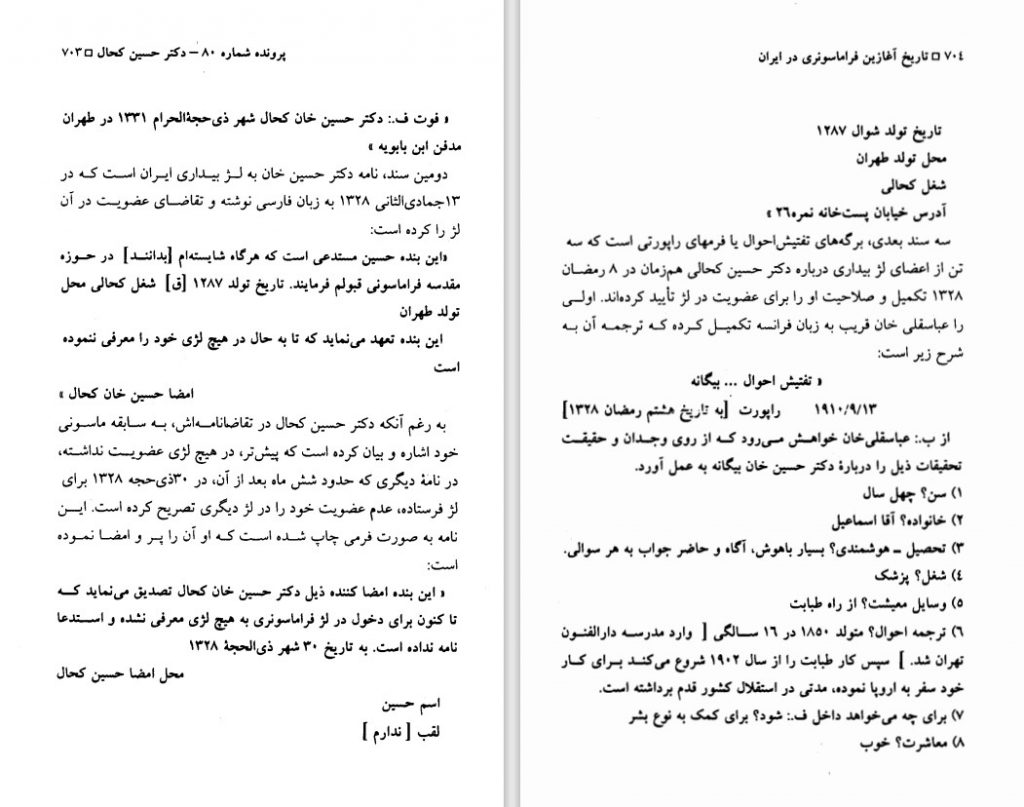 پرونده شماره ۸۰ – دکتر حسین کحال □ ۷۰۳
« فوت ف.: دکتر حسین خان کحال شهر ذی‌حجةالحرام ۱۳۳۱ در طهران
مدفن ابن بابویه »
دومین سند، نامه دکتر حسین خان به لژ بیداری ایران است که در
۱۳جمادی‌الثانی ۱۳۲۸ به زبان فارسی نوشته و تقاضای عضویت در آن
لژ را کرده است:
«این بنده حسین مستدعی است که هرگاه شایسته‌ام [بدانند] در حوزه
مقدسه فراماسونی قبولم فرمایند. تاریخ تولد ۱۲۸۷ [ق] شغل کحالی محل
تولد طهران
این بنده تعهد می‌نماید که تا به حال در هیچ لژی خود را معرفی ننموده
است
امضا حسین خان کحال »
به رغم آنکه دکتر حسین کحال در تقاضانامه‌اش، به سابقه ماسونی
خود اشاره و بیان کرده است که پیش‌تر، در هیچ لژی عضویت نداشته،
در نامهٔ دیگری که حدود شش ماه بعد از آن، در ۳۰ذی‌حجه ۱۳۲۸ برای
لژ فرستاده، عدم عضویت خود را در لژ دیگری تصریح کرده است. این
نامه به صورت فرمی چاپ شده است که او آن را پر و امضا نموده
است:
« این بنده امضا کننده ذیل دکتر حسین خان کحال تصدیق می‌نماید که
تا کنون برای دخول در لژ فراماسونری به هیچ لژی معرفی نشده و استدعا
نامه نداده است. به تاریخ ۳۰ شهر ذی‌الحجة ۱۳۲۸
محل امضا حسین کحال
اسم حسین
لقب [ ندارم ]
۷۰۴ □ تاریخ آغازین فراماسونری در ایران
تاریخ تولد شوال ۱۲۸۷
محل تولد طهران
شغل کحالی
آدرس خیابان پست‌خانه نمره۲۶ »
سه سند بعدی، برگه‌های تفتیش‌احوال یا فرمهای راپورتی است که سه
تن از اعضای لژ بیداری درباره دکتر حسین کحالی هم‌زمان در ۸ رمضان
۱۳۲۸ تکمیل و صلاحیت او را برای عضویت در لژ تأیید کرده‌اند. اولی
را عباسقلی خان قریب به زبان فرانسه تکمیل کرده که ترجمه آن به
شرح زیر است:
« تفتیش احوال ... بیگانه
۱۹۱۰/۹/۱۳ راپورت [به تاریخ هشتم رمضان ۱۳۲۸]
از ب.: عباسقلی‌خان خواهش می‌رود که از روی وجدان و حقیقت
تحقیقات ذیل را دربارهٔ دکتر حسین خان بیگانه به عمل آورد.
۱) سن؟ چهل سال
۲) خانواده؟ آقا اسماعیل
۳) تحصیل ـ هوشمندی؟ بسیار باهوش، آگاه و حاضر جواب به هر سوالی.
۴) شغل؟ پزشک
۵) وسایل معیشت؟ از راه طبابت
۶) ترجمه احوال؟ متولد ۱۸۵۰ در ۱۶ سالگی [ وارد مدرسه دارالفنون
تهران شد. ] سپس کار طبابت را از سال ۱۹۰۲ شروع می‌کند برای کار
خود سفر به اروپا نموده، مدتی در استقلال کشور قدم برداشته است.
۷) برای چه می‌خواهد داخل ف.: شود؟ برای کمک به نوع بشر
۸) معاشرت؟ خوب